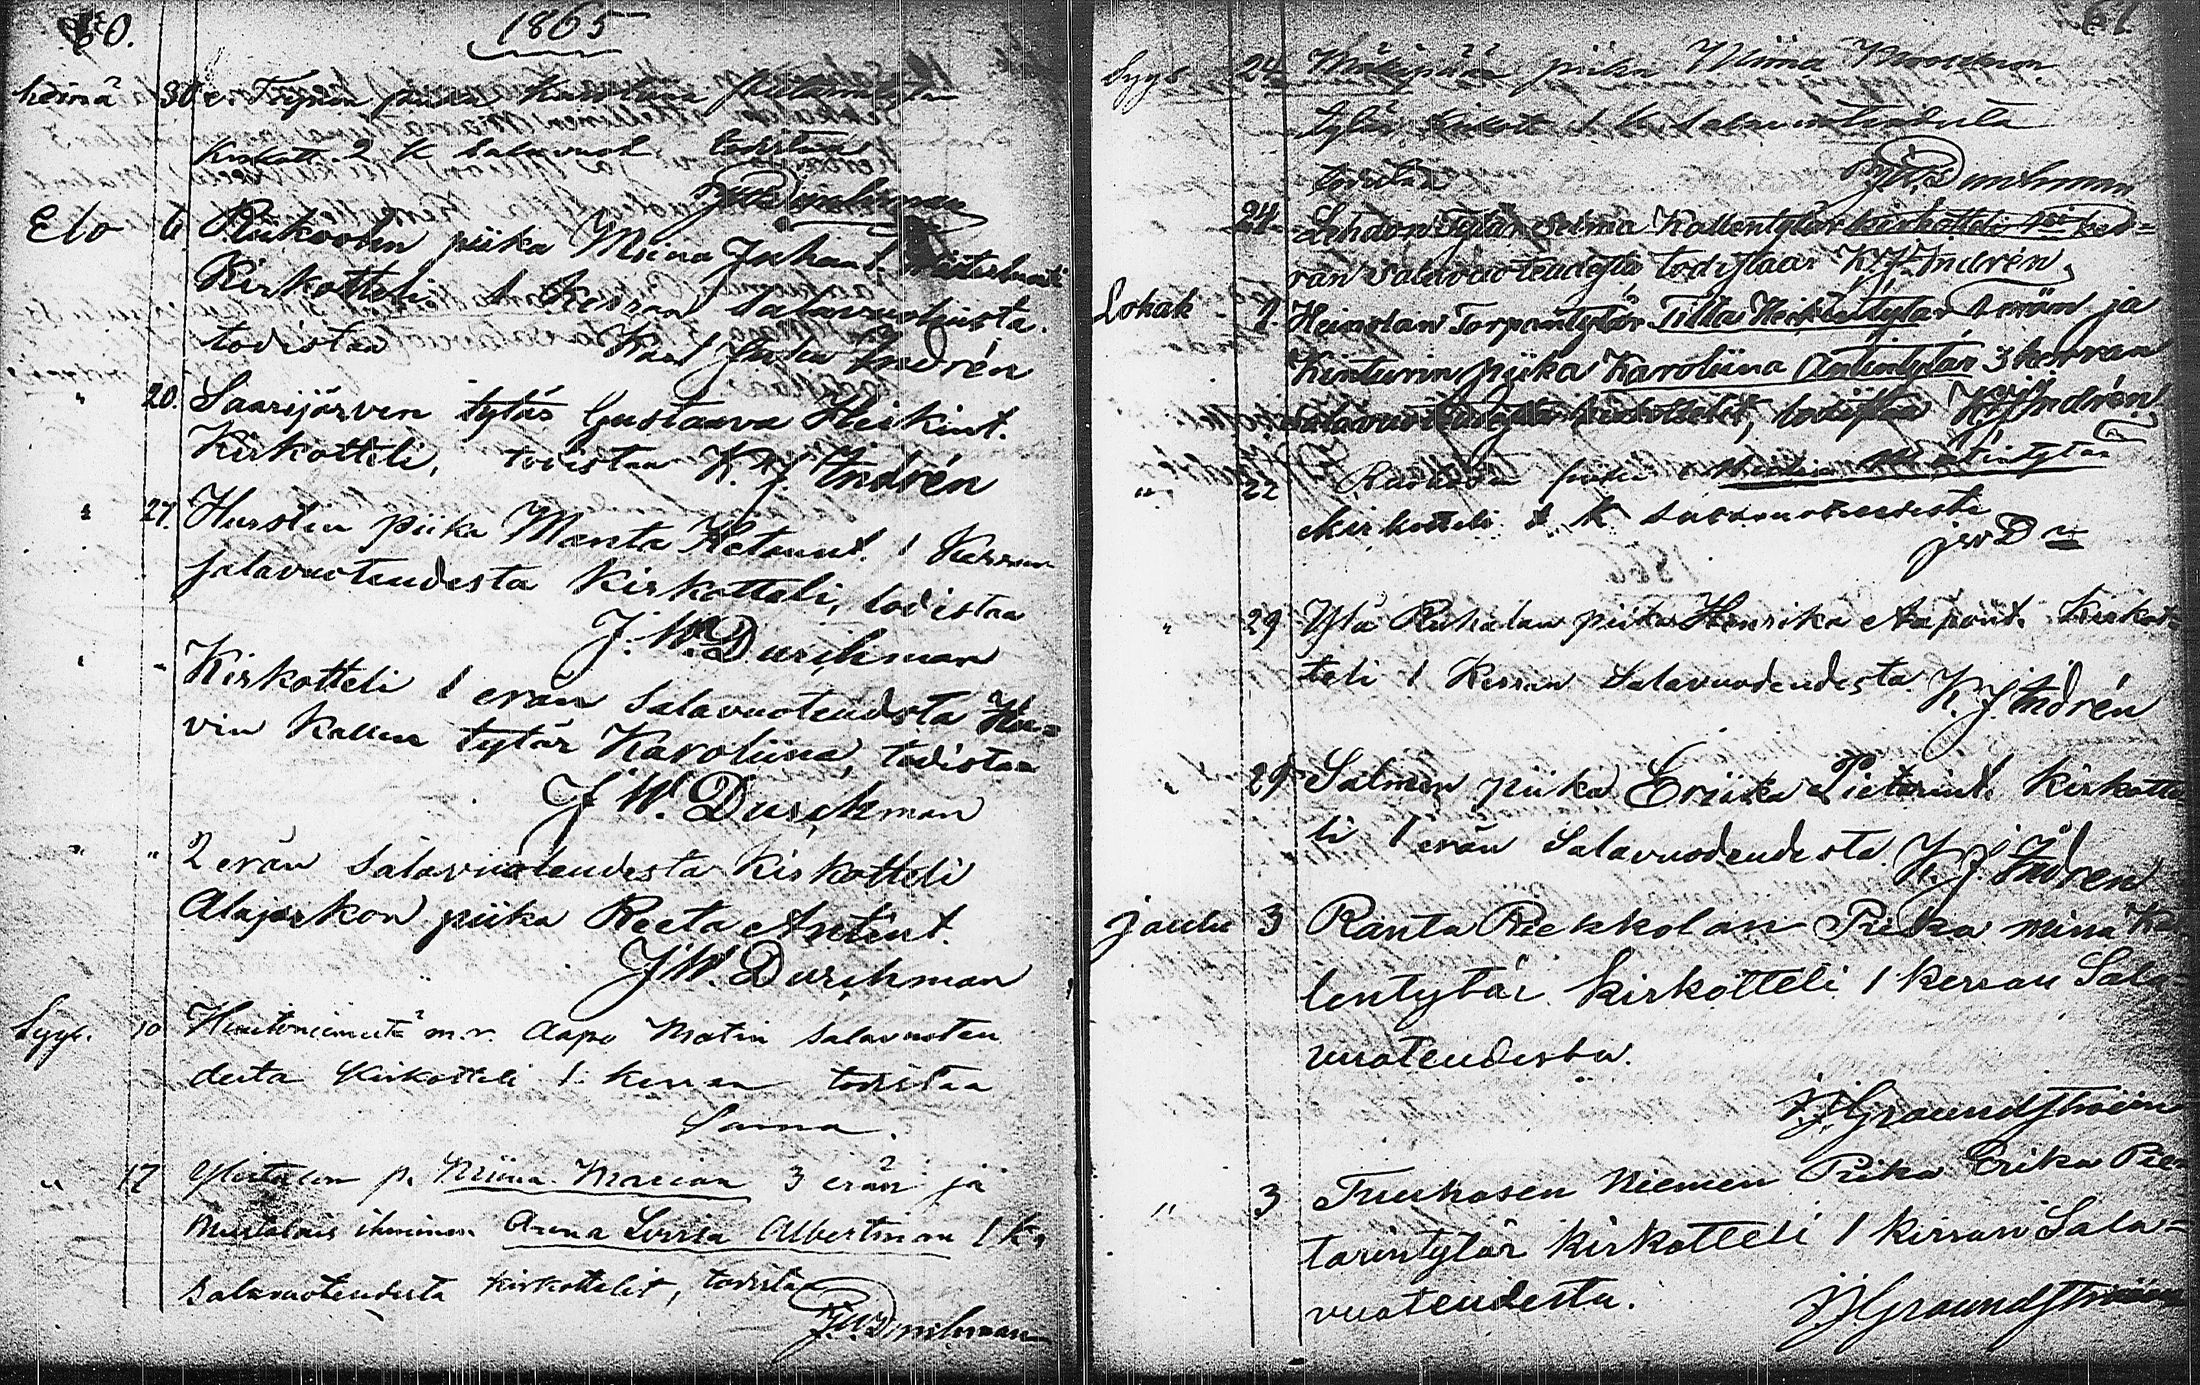 60.
1865
heinä 30 piika
Kirkott. 2 K salavuot todistaa
JWDurchman
Elo 6 Riikoolin piika Miina Juhant.
Kirkotteli 1 Kerran Salavuoteesta.
todistaa Karl Juho Indrén
" 20. Saarijärven tytär Gustaava Heikint.
Kirkotteli, todistaa K. J. Indrén
" 27. Hurstin piika Manta 1 Kerran
salavuoteudesta Kirkotteli, todistaa
J. W. Durchman
" " Kirkotteli 1 erän Salavuoteudesta Ha=
vin Kallen tytär Karoliina, todistaa
J W. Durchman
" " 2 erän Salavuoteudesta Kirkotteli
Alajaskon piika Reeta Antint.
J W. Durchman
Syys. 10 m.v. Aapo Matin Salavuoteu
desta Kirkotteli 1 kerran todistaa
Sama.
" 17 p. Miina Marian 3 erän ja
ihminen Anna Lovisa Albertinan 1 k.
salavuoteudesta kirkottelit, todistaa
JWDurchman
61.
Syys 24 Mäkipään piika Miina
tytär Kirkott 1 k. Salavuoteudesta
todistaa Durchman
24. Lehdon Tytär Selma Kallentytär kirkotteli 1si ker=
ran Salavuoteudesta todistaa K.J. Indrén,
Lokak Heinolan Torpantytär Tilta Heikintytär 1 erän ja
Kinturin piika Karoliina Antintytär 3 kerran
salavuoteudesta kirkottelit, todistaa K.J. Indrén
" 22 piika Matintytär
Kirkotteli 1 k salavuoteudesta
JWDn
" 29 Ylä Ruhalan piika Henrika Aapont. Kirkot=
teli 1 Kerran Salavuodeudesta. K. J. Indrén
" 29 Salmen piika Eriika Pietarint. Kirkotte
li 1 erän Salavuodeudesta. K. J. Indrén
joulu 3 Ranta Riekkolan Piika Miina Ka
lentytär Kirkotteli 1 kerran Sala=
vuoteudesta.
JJGroundström
" 3 Tuuhasen Niemen Piika Erika Pie
tarintytär Kirkotteli 1 kerran Sala=
vuoteudesta. JJGroundström